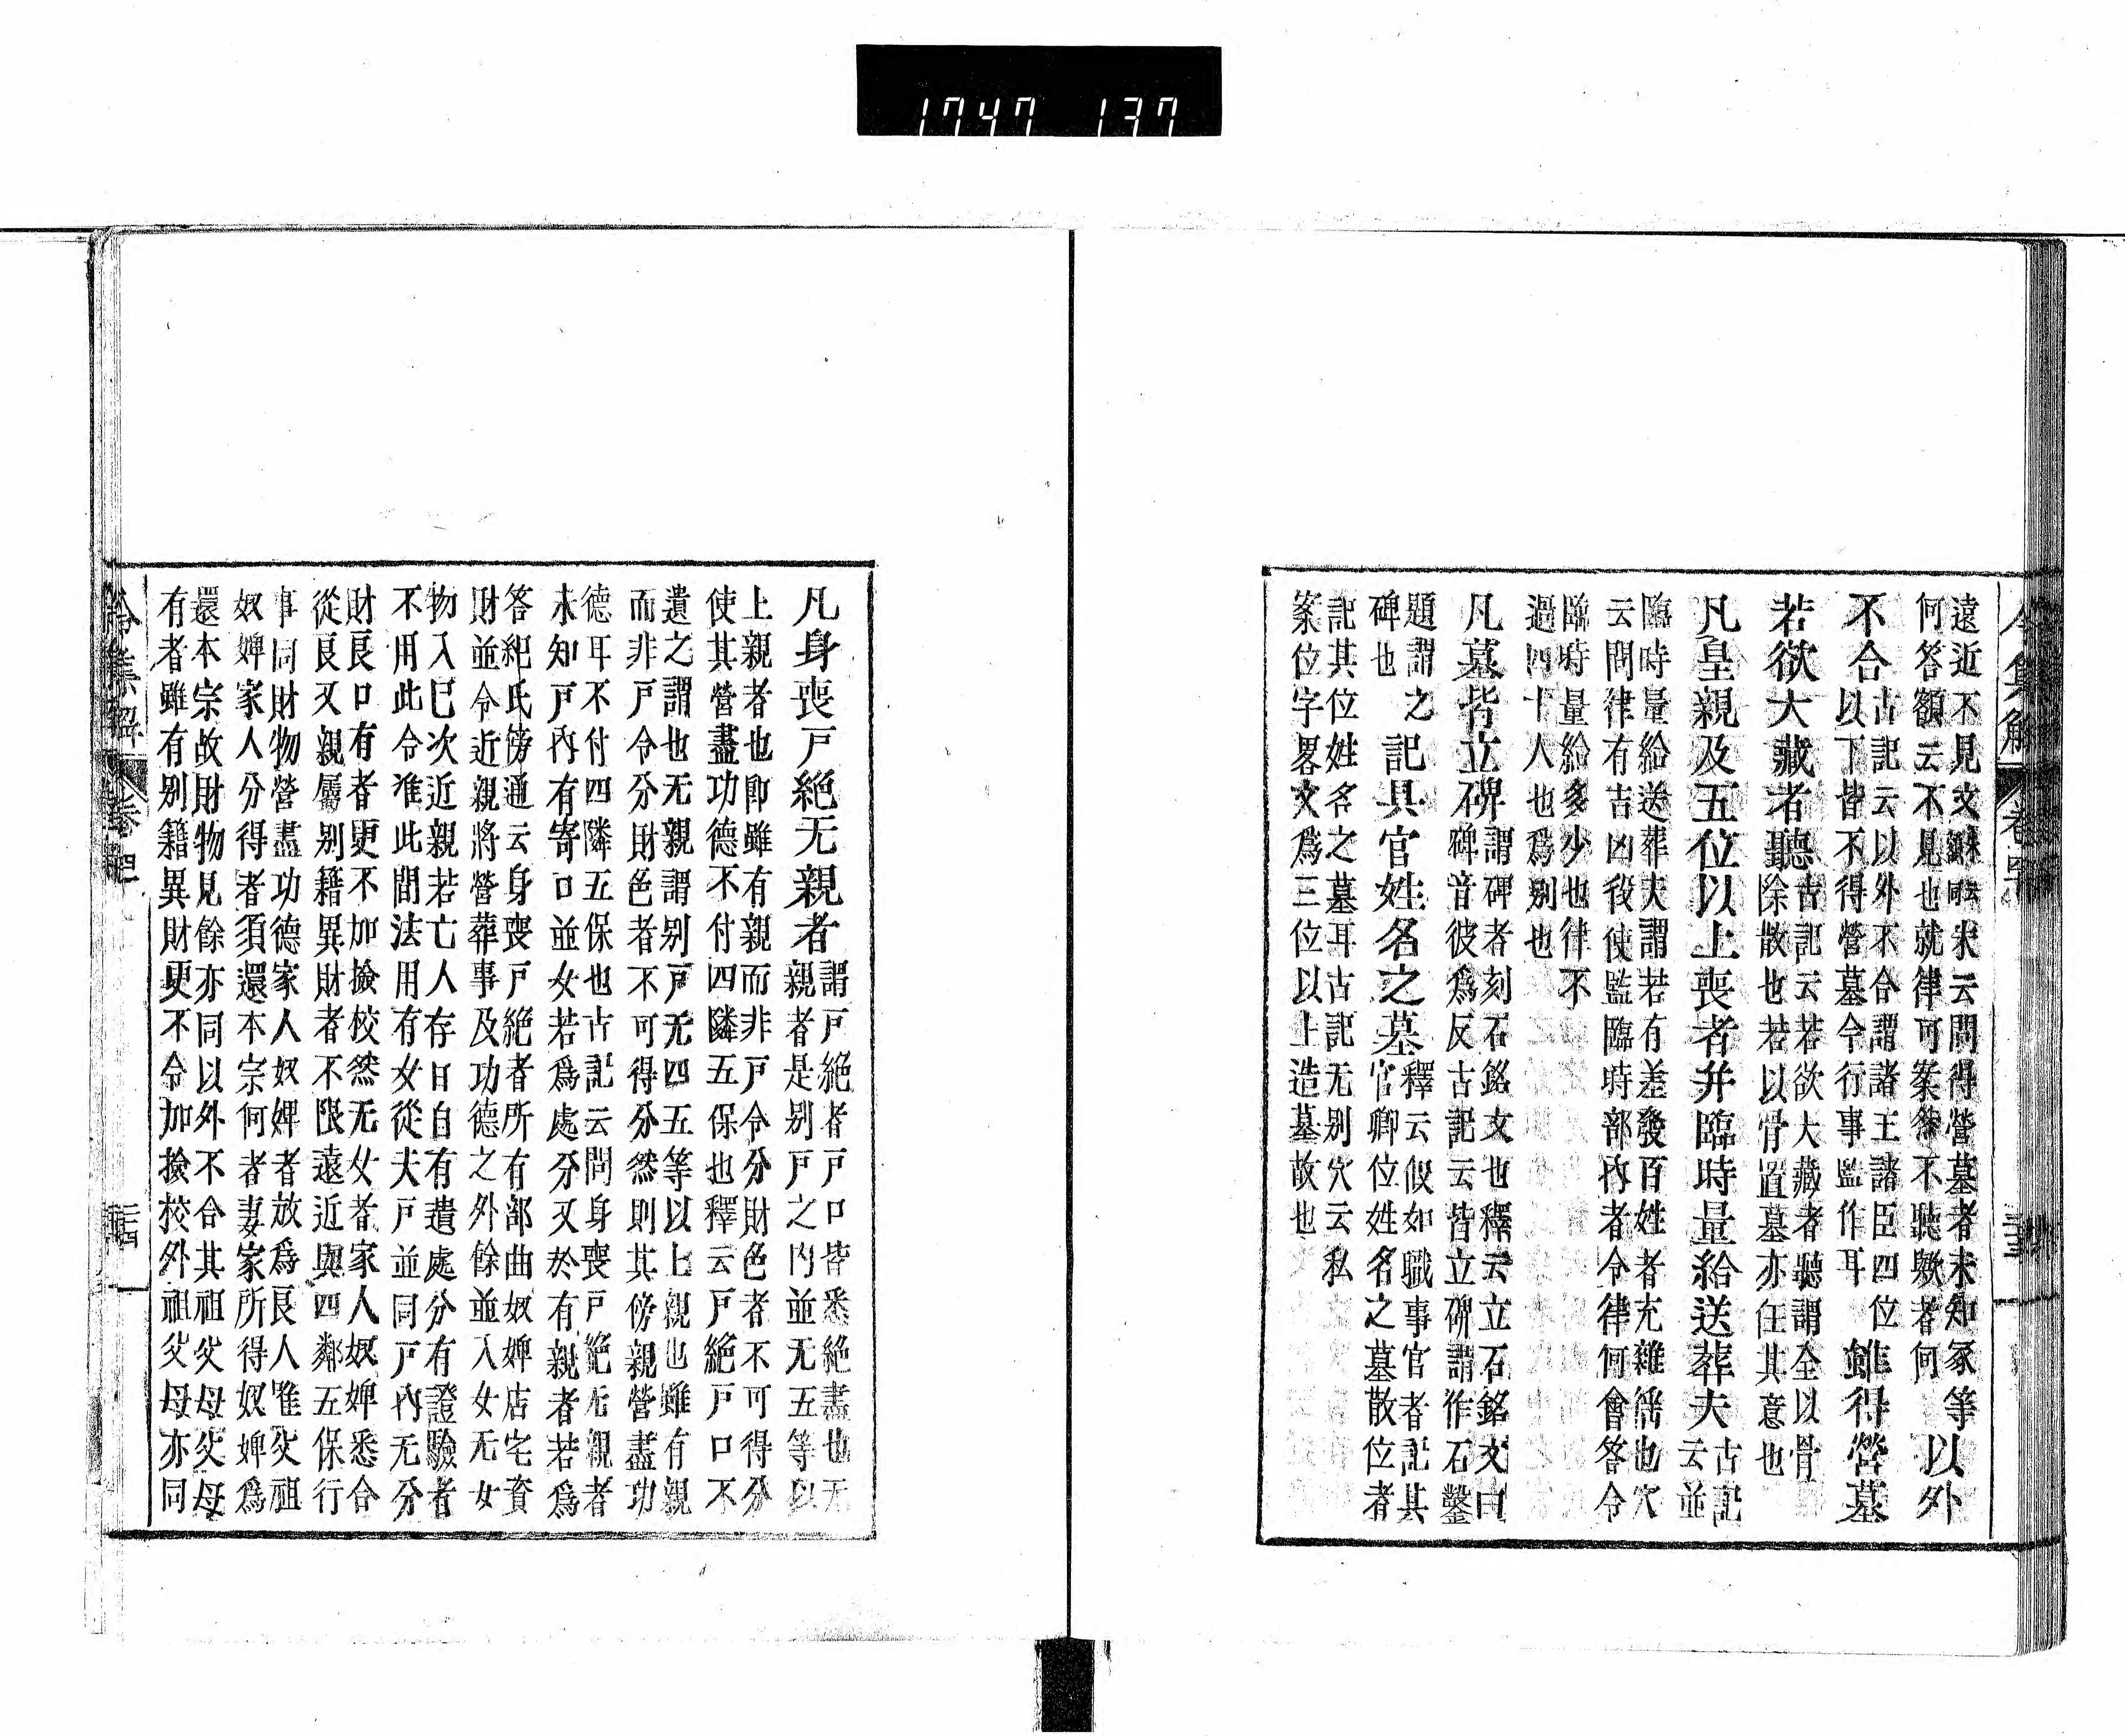 1747 137
令集解 卷四十
遠近不見文 求云問得營墓者未知冢等
何答額云不見也就律可案律不聽歟者何
以外
不合
古記云以外不合謂諸王諸臣四位
以下皆不得營墓令行事監作耳
雖得營墓
若欲大藏者聽
古記云若欲大藏者聽謂全以骨
除散也若以骨置墓亦任其意也
凡皇親及五位以上喪者并臨時量給送葬夫
古記
云並
臨時量給送葬夫謂若有差發百姓者充雜徭也穴
云問律有吉凶役使監臨時部內者令律何會答令
臨時量給多少也律不
過四十人也爲別也
凡墓皆立碑
謂碑者刻石銘文也釋云立石銘文曰
碑音彼爲反古記云皆立碑謂作石鑿
題謂之
碑也
記具官姓名之墓
釋云假如職事官者記其
官卿位姓名之墓散位者
記其位姓名之墓耳古記无別穴云私
案位字畧文爲三位以上造墓故也
凡身喪戸絕无親者
謂戸絕者戸口皆悉絕盡也无
親者是别戸之內並无五等以
上親者也即雖有親而非戸令分財色者不可得分
使其營盡功德不付四隣五保也釋云戸絕戸口不
遺之謂也无親謂别戸无四五等以上親也雖有親
而非戸令分財色者不可得分然則其傍親營盡功
德耳不付四隣五保也古記云問身喪戸絕无親者
未知戸內有寄口並女若爲處分又於有親者若爲
答紀氏傍通云身喪戸絕者所有部曲奴婢店宅資
財並令近親將營葬事及功德之外餘並入女无女
物入已次近親若亡人存日自有遺處分有證驗者
不用此令准此間法用有女從夫戸並同戸內无分
財良口有者更不加撿校然无女者家人奴婢悉合
從良又親屬别籍異財者不限遠近與四鄰五保行
事同財物營盡功德家人奴婢者放爲良人唯父祖
奴婢家人分得者須還本宗何者妻家所得奴婢爲
還本宗故財物見餘亦同以外不合其祖父母父母
有者雖有别籍異財更不令加撿挍外祖父母亦同
令集解 卷四十
三十四